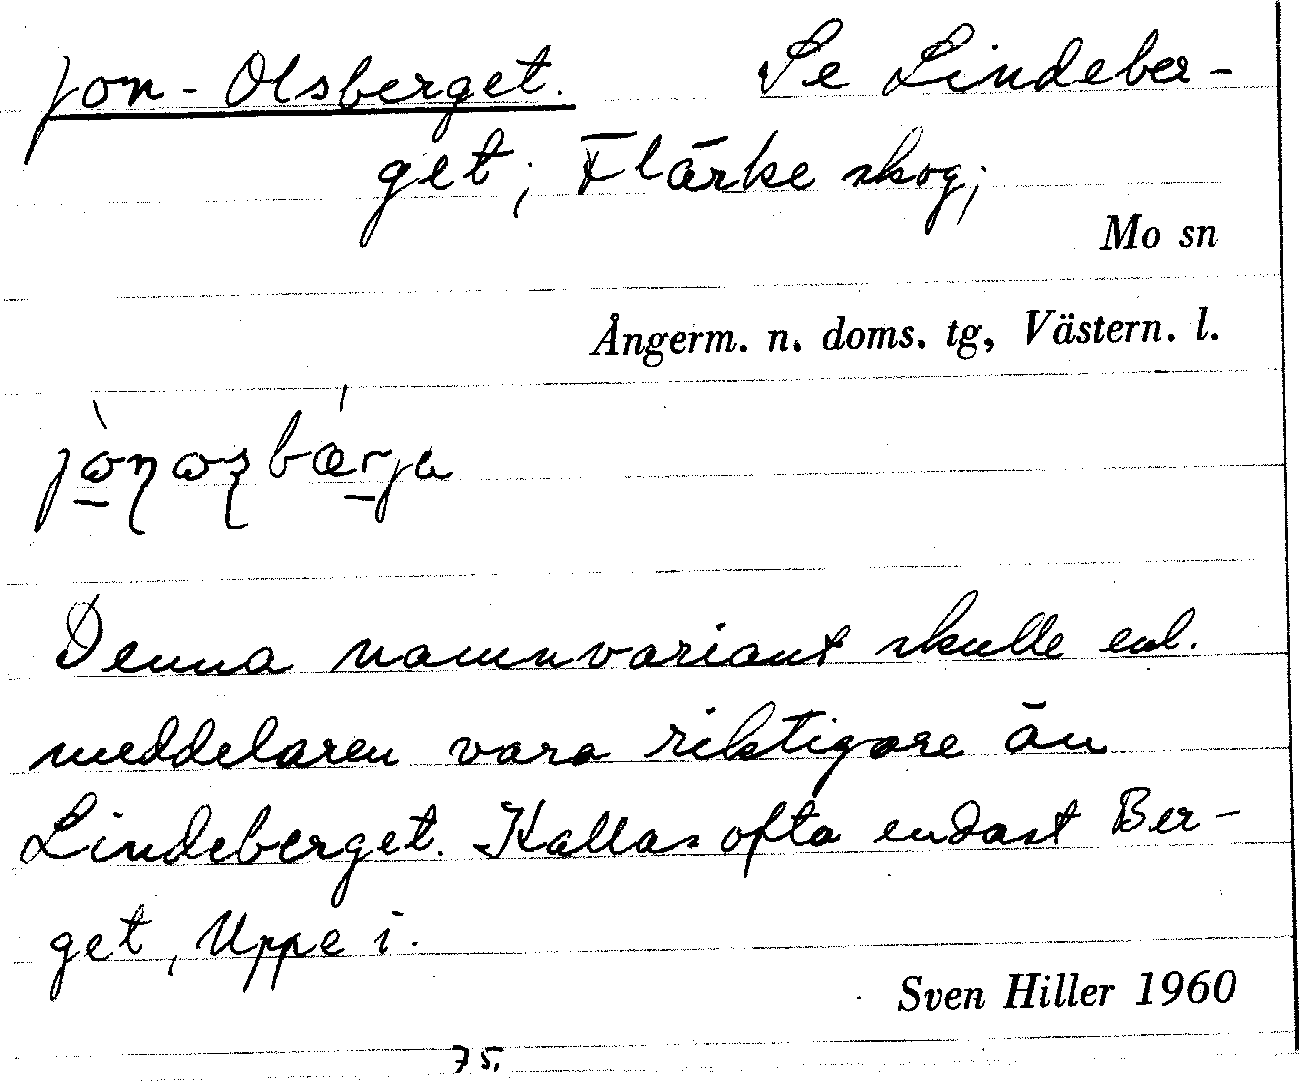 Jon-Olsberget. Se Lindeber-
get; Flärke skog;
Mo sn
Ångerm. n. doms. tg, Västern. l.
Denna namnvariant skulle enl.
meddelaren vara riktigare än
Lindeberget. Kallas ofta endast Ber-
get, Uppe i.
Sven Hiller 1960
75.